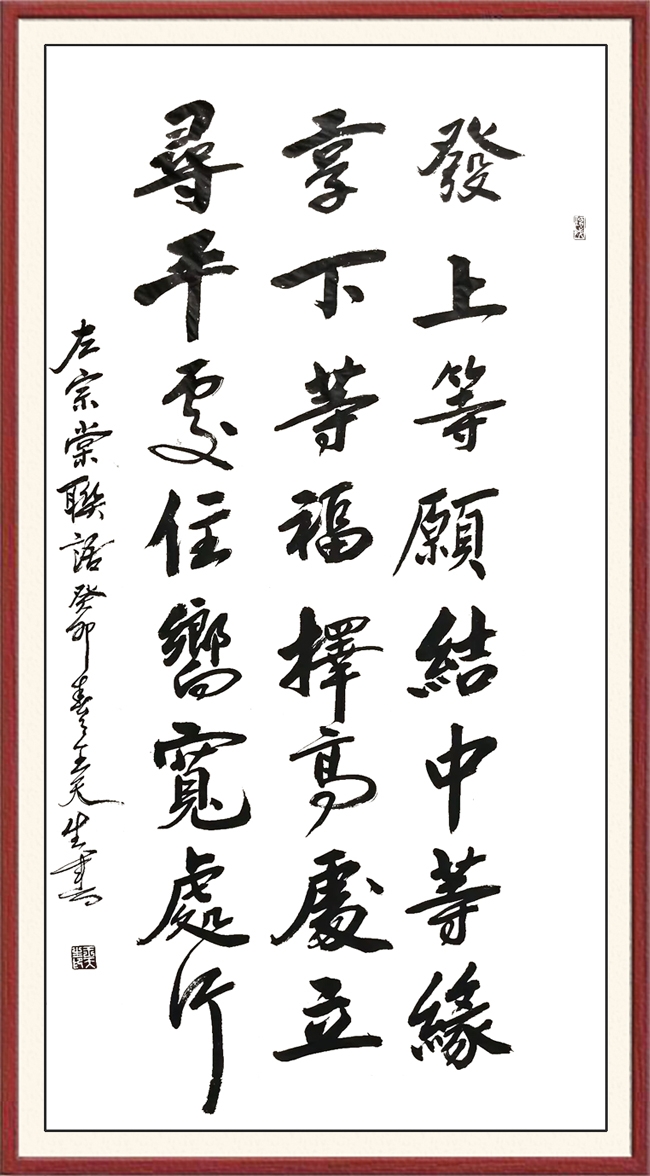 發上等願結中等緣
享下等福擇高處立
尋平處住嚮寬處行
左宗棠聯語癸卯春王天生書